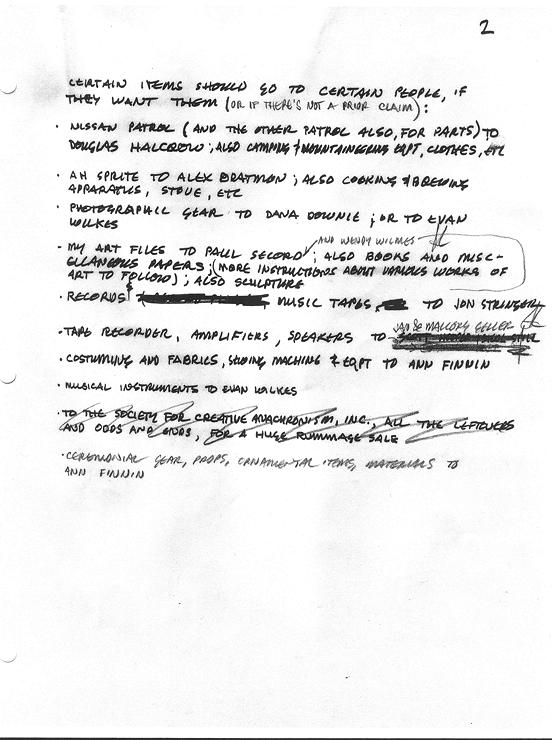 2
CERTAIN ITEMS SHOULD GO TO CERTAIN PEOPLE, IF
THEY WANT THEM (OR IF THERE'S NOT A PRIOR CLAIM):
· NISSAN PATROL (AND THE OTHER PATROL ALSO, FOR PARTS) TO
DOUGLAS HALCROW; ALSO CAMPING & MOUNTAINEERING EQPT, CLOTHES, ETC
AH SPRITE TO ALEX BRATMON; ALSO COOKING & BREWING
APPARATUS, STOVE, ETC
· PHOTOGRAPHIC GEAR TO DANA DOWNIE; OR TO EVAN
WILKES
AND WENDY WILMES
· MY ART FILES TO PAUL SECORD; ALSO BOOKS AND MISC-
ELLANEOUS PAPERS; (MORE INSTRUCTIONS ABOUT VARIOUS WORKS OF
ART TO FOLLOW); ALSO SCULPTURE
· RECORDS & MUSIC TAPES, TO JON STRINGER
· TAPE RECORDER, AMPLIFIERS, SPEAKERS TO MALLORY GELLER
· COSTUMING AND FABRICS, SEWING MACHINE & EQPT TO ANN FINNIN
· MUSICAL INSTRUMENTS TO EVAN WILKES
· TO THE SOCIETY FOR CREATIVE ANACHRONISM, INC., ALL THE LEFTOVERS
AND ODDS AND ENDS, FOR A HUGE RUMMAGE SALE
· CEREMONIAL GEAR, PROPS, ORNAMENTAL ITEMS, MATERIALS TO
ANN FINNIN